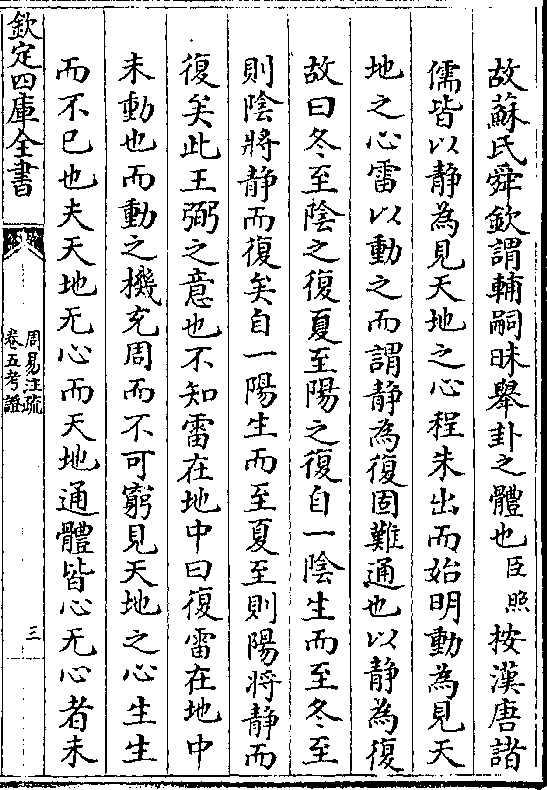 故蘇氏舜欽謂輔嗣昧舉卦之體也臣照按漢唐諸
儒皆以静為見天地之心程朱出而始明動為見天
地之心雷以動之而謂静為復固難通也以静為復
故曰冬至隂之復夏至陽之復自一隂生而至冬至
則隂將静而復矣自一陽生而至夏至則陽將静而
復矣此王弼之意也不知雷在地中曰復雷在地中
未動也而動之機充周而不可窮見天地之心生生
而不已也夫天地无心而天地通體皆心无心者未
欽定四庫全書
周易注疏
卷五考證
三